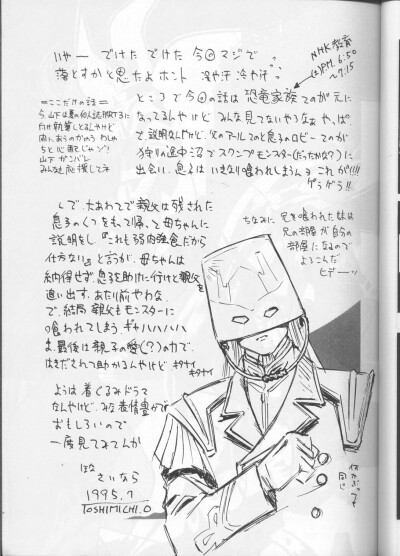 いやー でけた でけた 今回マジで
落とすかと思たよホント 冷や汗 冷や汗
NHK教育
(土)PM.6:50
〜7:15
=ここだけの話=
今、山下は夏の同人誌
ワシャ
ちと心配じゃゾ!
山下 ガンバレ
みんなも応援してネ
ところで今回の話は恐竜家族てのが元に
なってるんやけど みんな見てないやろなぁ やっぱ。
で、説明なんだけど、父のアールつのと息子のロビーてのが
狩りの途中沼でスワンプモンスター(だったかな?)に
出会い、息子はいきなり喰われしまうんョ これが!!!
ゲぅゲぅ!!
しで、大あわてで親父は残された
息子のくつをもって帰って母ちゃんに
説明をし『これも弱肉強食だから
仕方ない』と言うが、母ちゃんは
納得せず、息子を助けに行けと親父を
追い出す。あたり前やわな。
で、結局、親父もモンスターに
喰われてしまう。ギャハハハハ
ま、最後は親子の愛(?)の力で、
はきだされて助かるんやけど キタナイ キタナイ
ちなみに、兄を喰われた妹は
兄の部屋が自分の
部屋になるので
よろこんだ
ヒデーッ
ようは着ぐるみドラマ
なんやけど、みな表情豊かで
おもしろいので
一度見てみてんか
ほな
さいなら
1995.7
TOSHIMICHI.O
何かぶっても
同じ